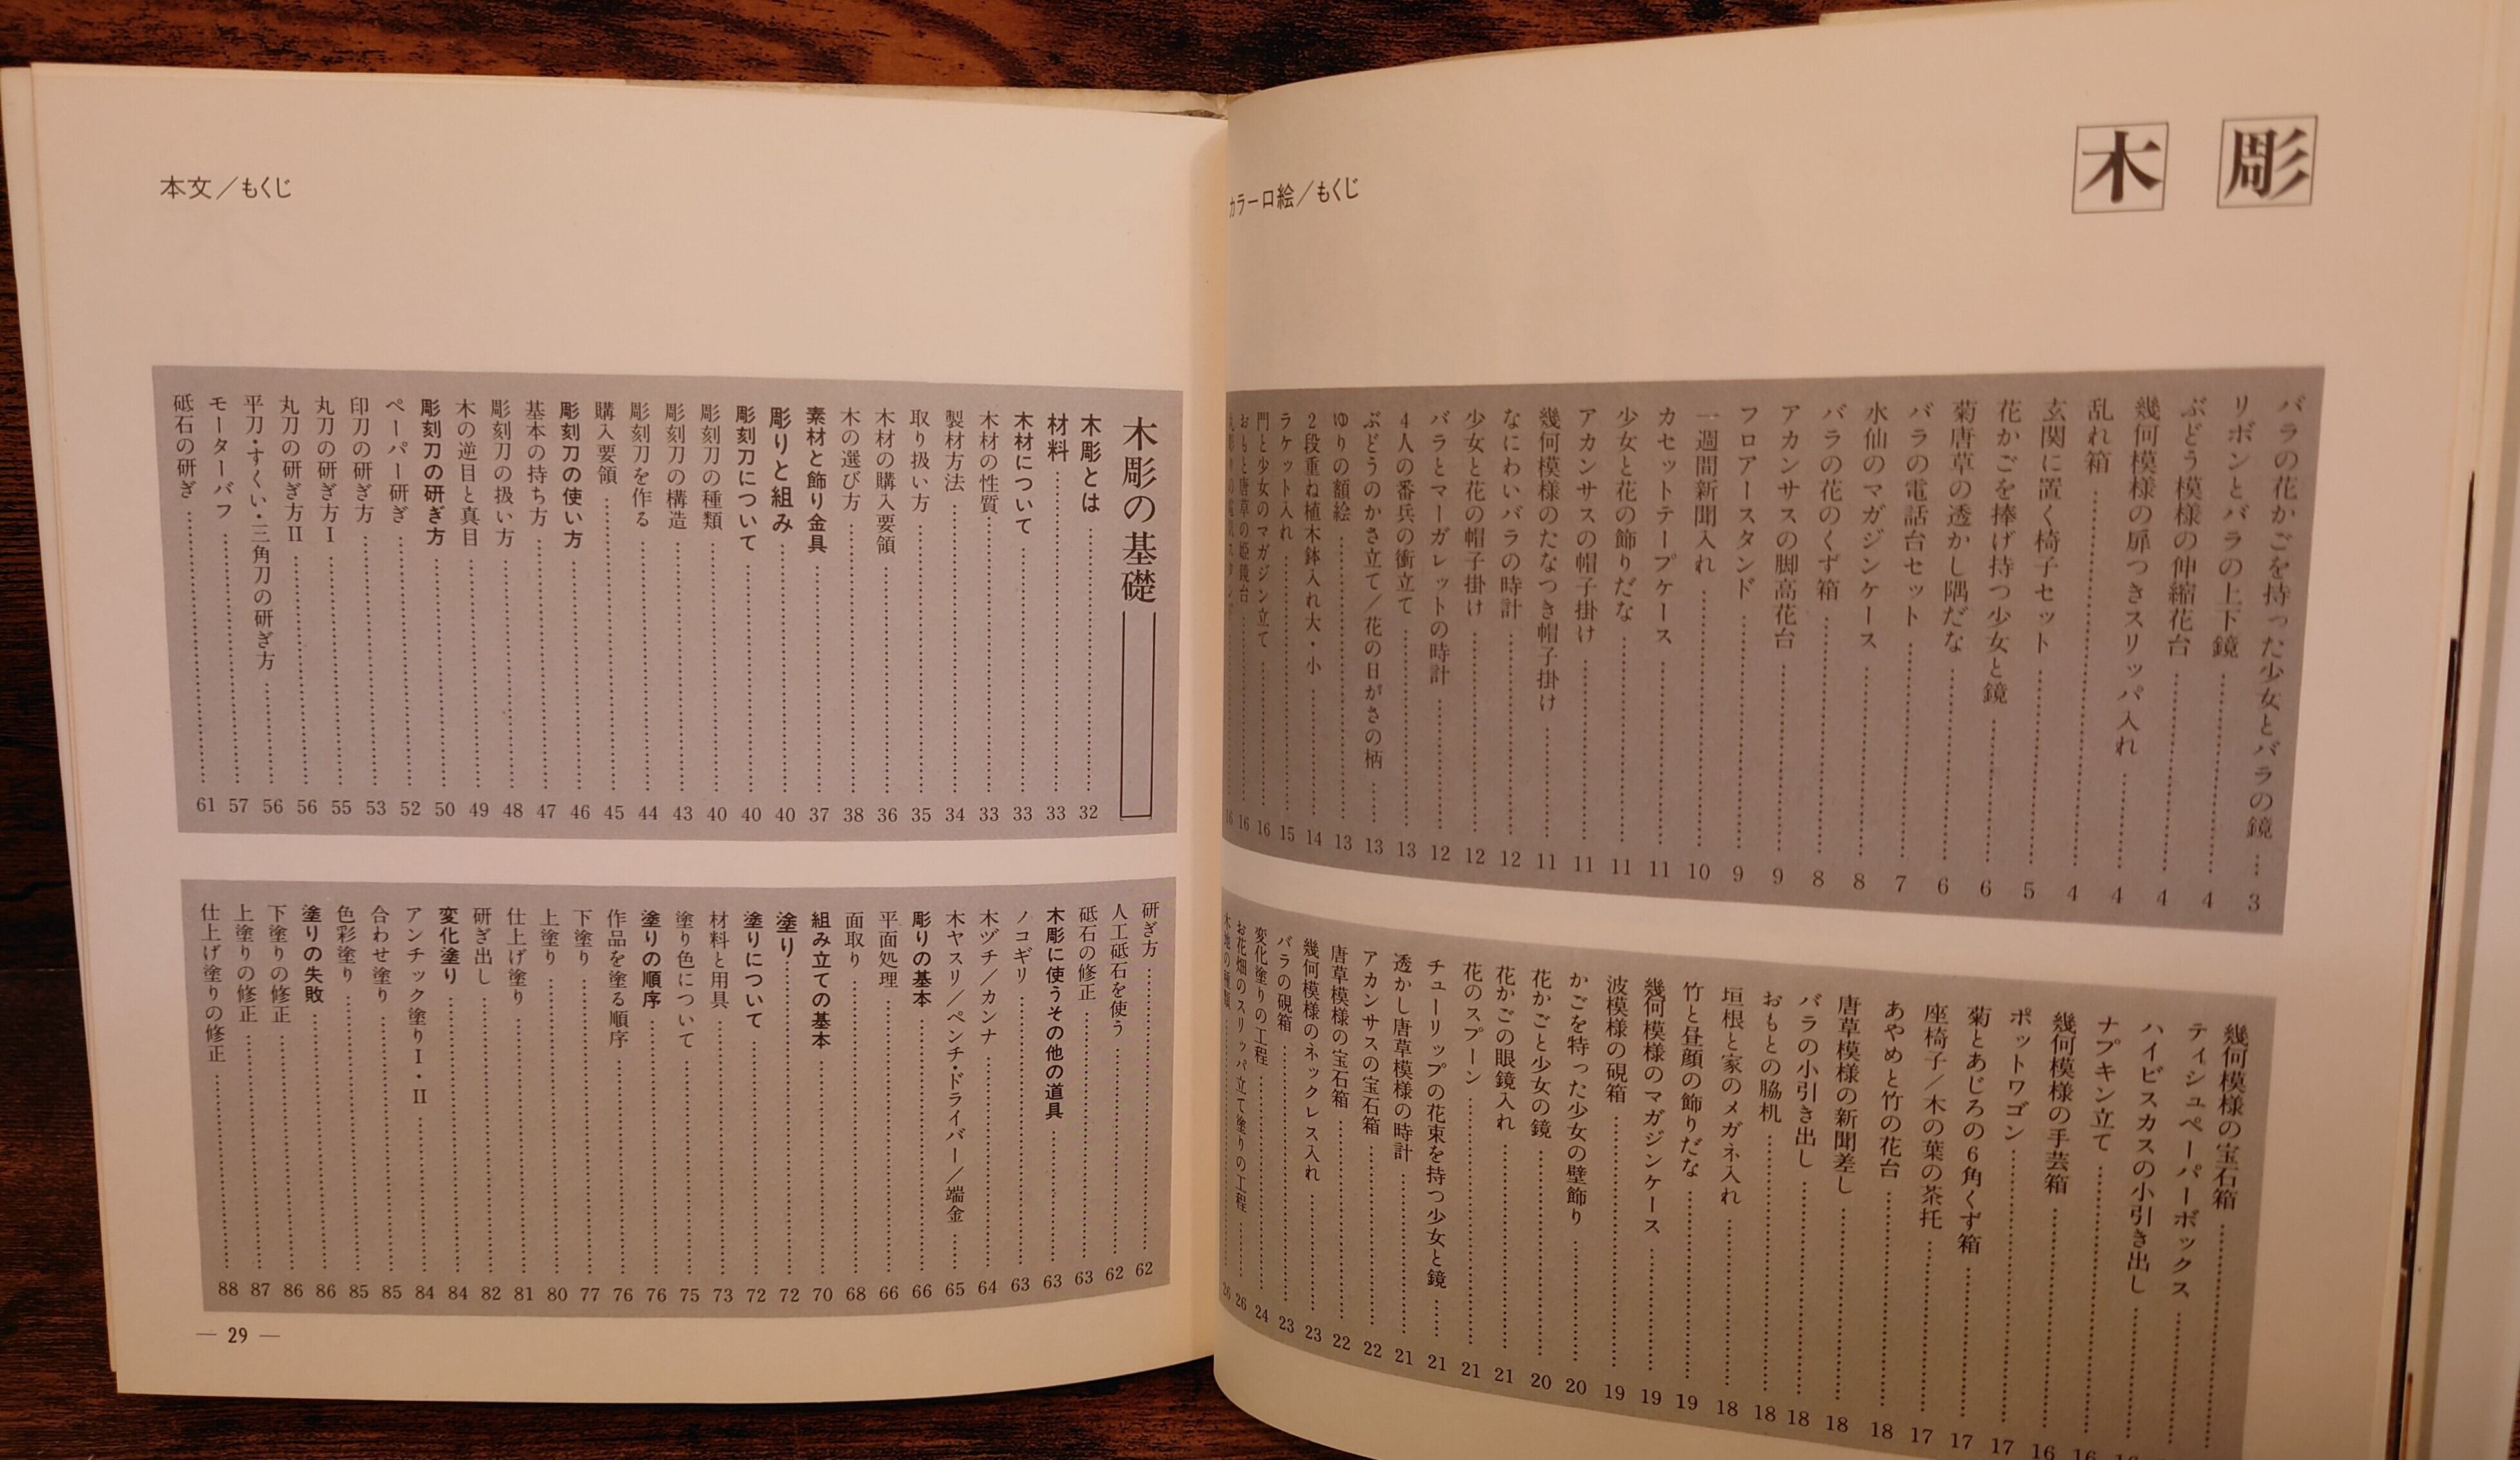 木彫
カラー口絵／もくじ
バラの花かごを持った少女とバラの鏡……3
リボンとバラの上下鏡……4
ぶどう模様の伸縮花台……4
幾何模様の扉つきスリッパ入れ……4
乱れ箱……4
玄関に置く椅子セット……5
花かごを捧げ持つ少女と鏡……6
菊唐草の透かし隅だな……6
バラの電話台セット……7
水仙のマガジンケース……8
バラの花のくず箱……8
アカンサスの脚高花台……9
フロアースタンド……9
一週間新聞入れ……10
カセットテープケース……11
少女と花の飾りだな……11
アカンサスの帽子掛け……11
幾何模様のたなつき帽子掛け……11
なにわいバラの時計……12
少女と花の帽子掛け……12
バラとマーガレットの時計……12
4人の番兵の衝立て……13
ぶどうのかさ立て／花の日がさの柄……13
ゆりの額絵……13
2段重ね植木鉢入れ大・小……14
ラケット入れ……15
門と少女のマガジン立て……16
おもと唐草の姫鏡台……16
幾何模様の宝石箱
ティシュペーパーボックス
ハイビスカスの小引き出し
ナプキン立て……16
幾何模様の手芸箱……16
ポットワゴン……17
菊とあじろの6角くず箱……17
座椅子／木の葉の茶托……17
あやめと竹の花台……18
唐草模様の新聞差し……18
バラの小引き出し……18
おもとの脇机……18
垣根と家のメガネ入れ……18
竹と昼顔の飾りだな……19
幾何模様のマガジンケース……19
波模様の硯箱……19
かごを持った少女の壁飾り……20
花かごと少女の鏡……20
花かごの眼鏡入れ……21
花のスプーン……21
チューリップの花束を持つ少女と鏡……21
透かし唐草模様の時計……21
アカンサスの宝石箱……22
唐草模様の宝石箱……22
幾何模様のネックレス入れ……23
バラの硯箱……23
変化塗りの工程……24
お花畑のスリッパ立て塗りの工程……26
木地の種類……26
本文／もくじ
木彫の基礎
木彫とは……32
材料……33
木材について……33
木材の性質……33
製材方法……34
取り扱い方……35
木材の購入要領……36
木の選び方……38
素材と飾り金具……37
彫りと組み……40
彫刻刀について……40
彫刻刀の種類……40
彫刻刀の構造……43
彫刻刀を作る……44
購入要領……45
彫刻刀の使い方……46
基本の持ち方……47
彫刻刀の扱い方……48
木の逆目と真目……49
彫刻刀の研ぎ方……50
ペーパー研ぎ……52
印刀の研ぎ方……53
丸刀の研ぎ方Ⅰ……55
丸刀の研ぎ方Ⅱ……56
平刀・すくい・三角刀の研ぎ方……56
モーターバフ……57
砥石の研ぎ……61
研ぎ方……62
人工砥石を使う……62
砥石の修正……63
木彫に使うその他の道具……63
ノコギリ……63
木ヅチ／カンナ……64
木ヤスリ／ペンチ・ドライバー／端金……65
彫りの基本……66
平面処理……66
面取り……68
組み立ての基本……70
塗り……72
塗りについて……72
材料と用具……73
塗り色について……75
塗りの順序……76
作品を塗る順序……76
下塗り……77
上塗り……80
仕上げ塗り……81
研ぎ出し……82
変化塗り……84
アンチック塗りⅠ・Ⅱ……84
合わせ塗り……85
色彩塗り……85
塗りの失敗……86
下塗りの修正……86
上塗りの修正……87
仕上げ塗りの修正……88
— 29 —